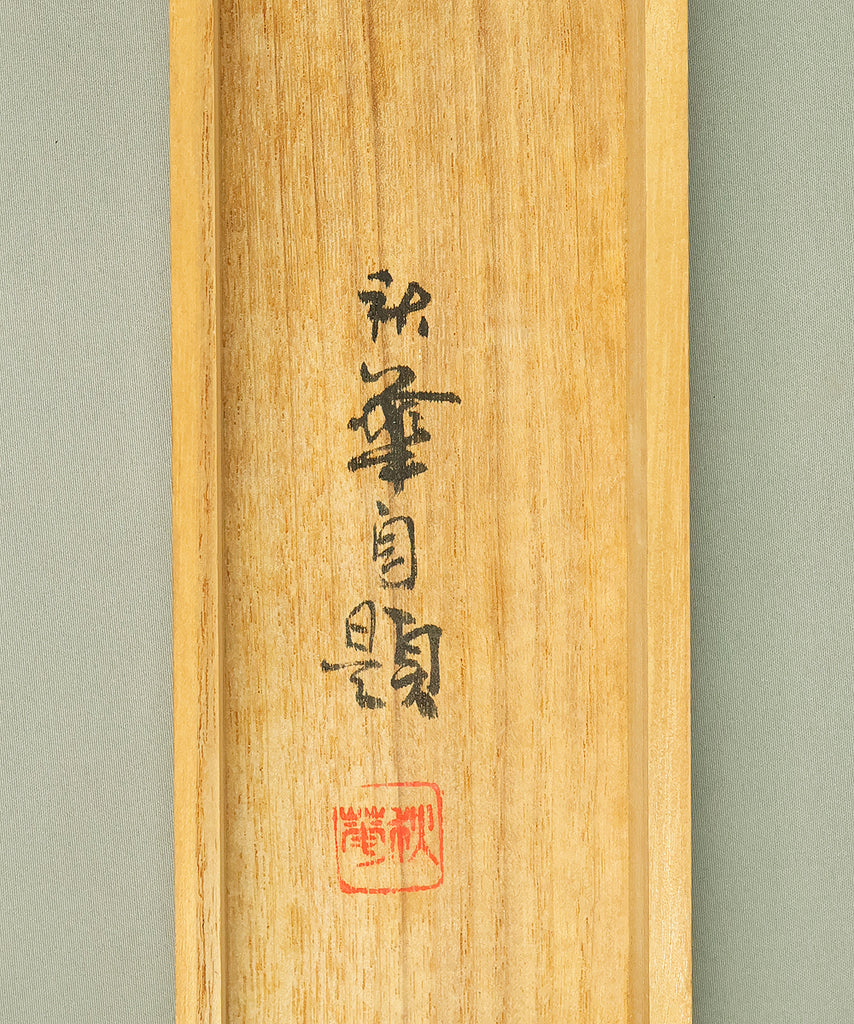 秋華自題
秋華